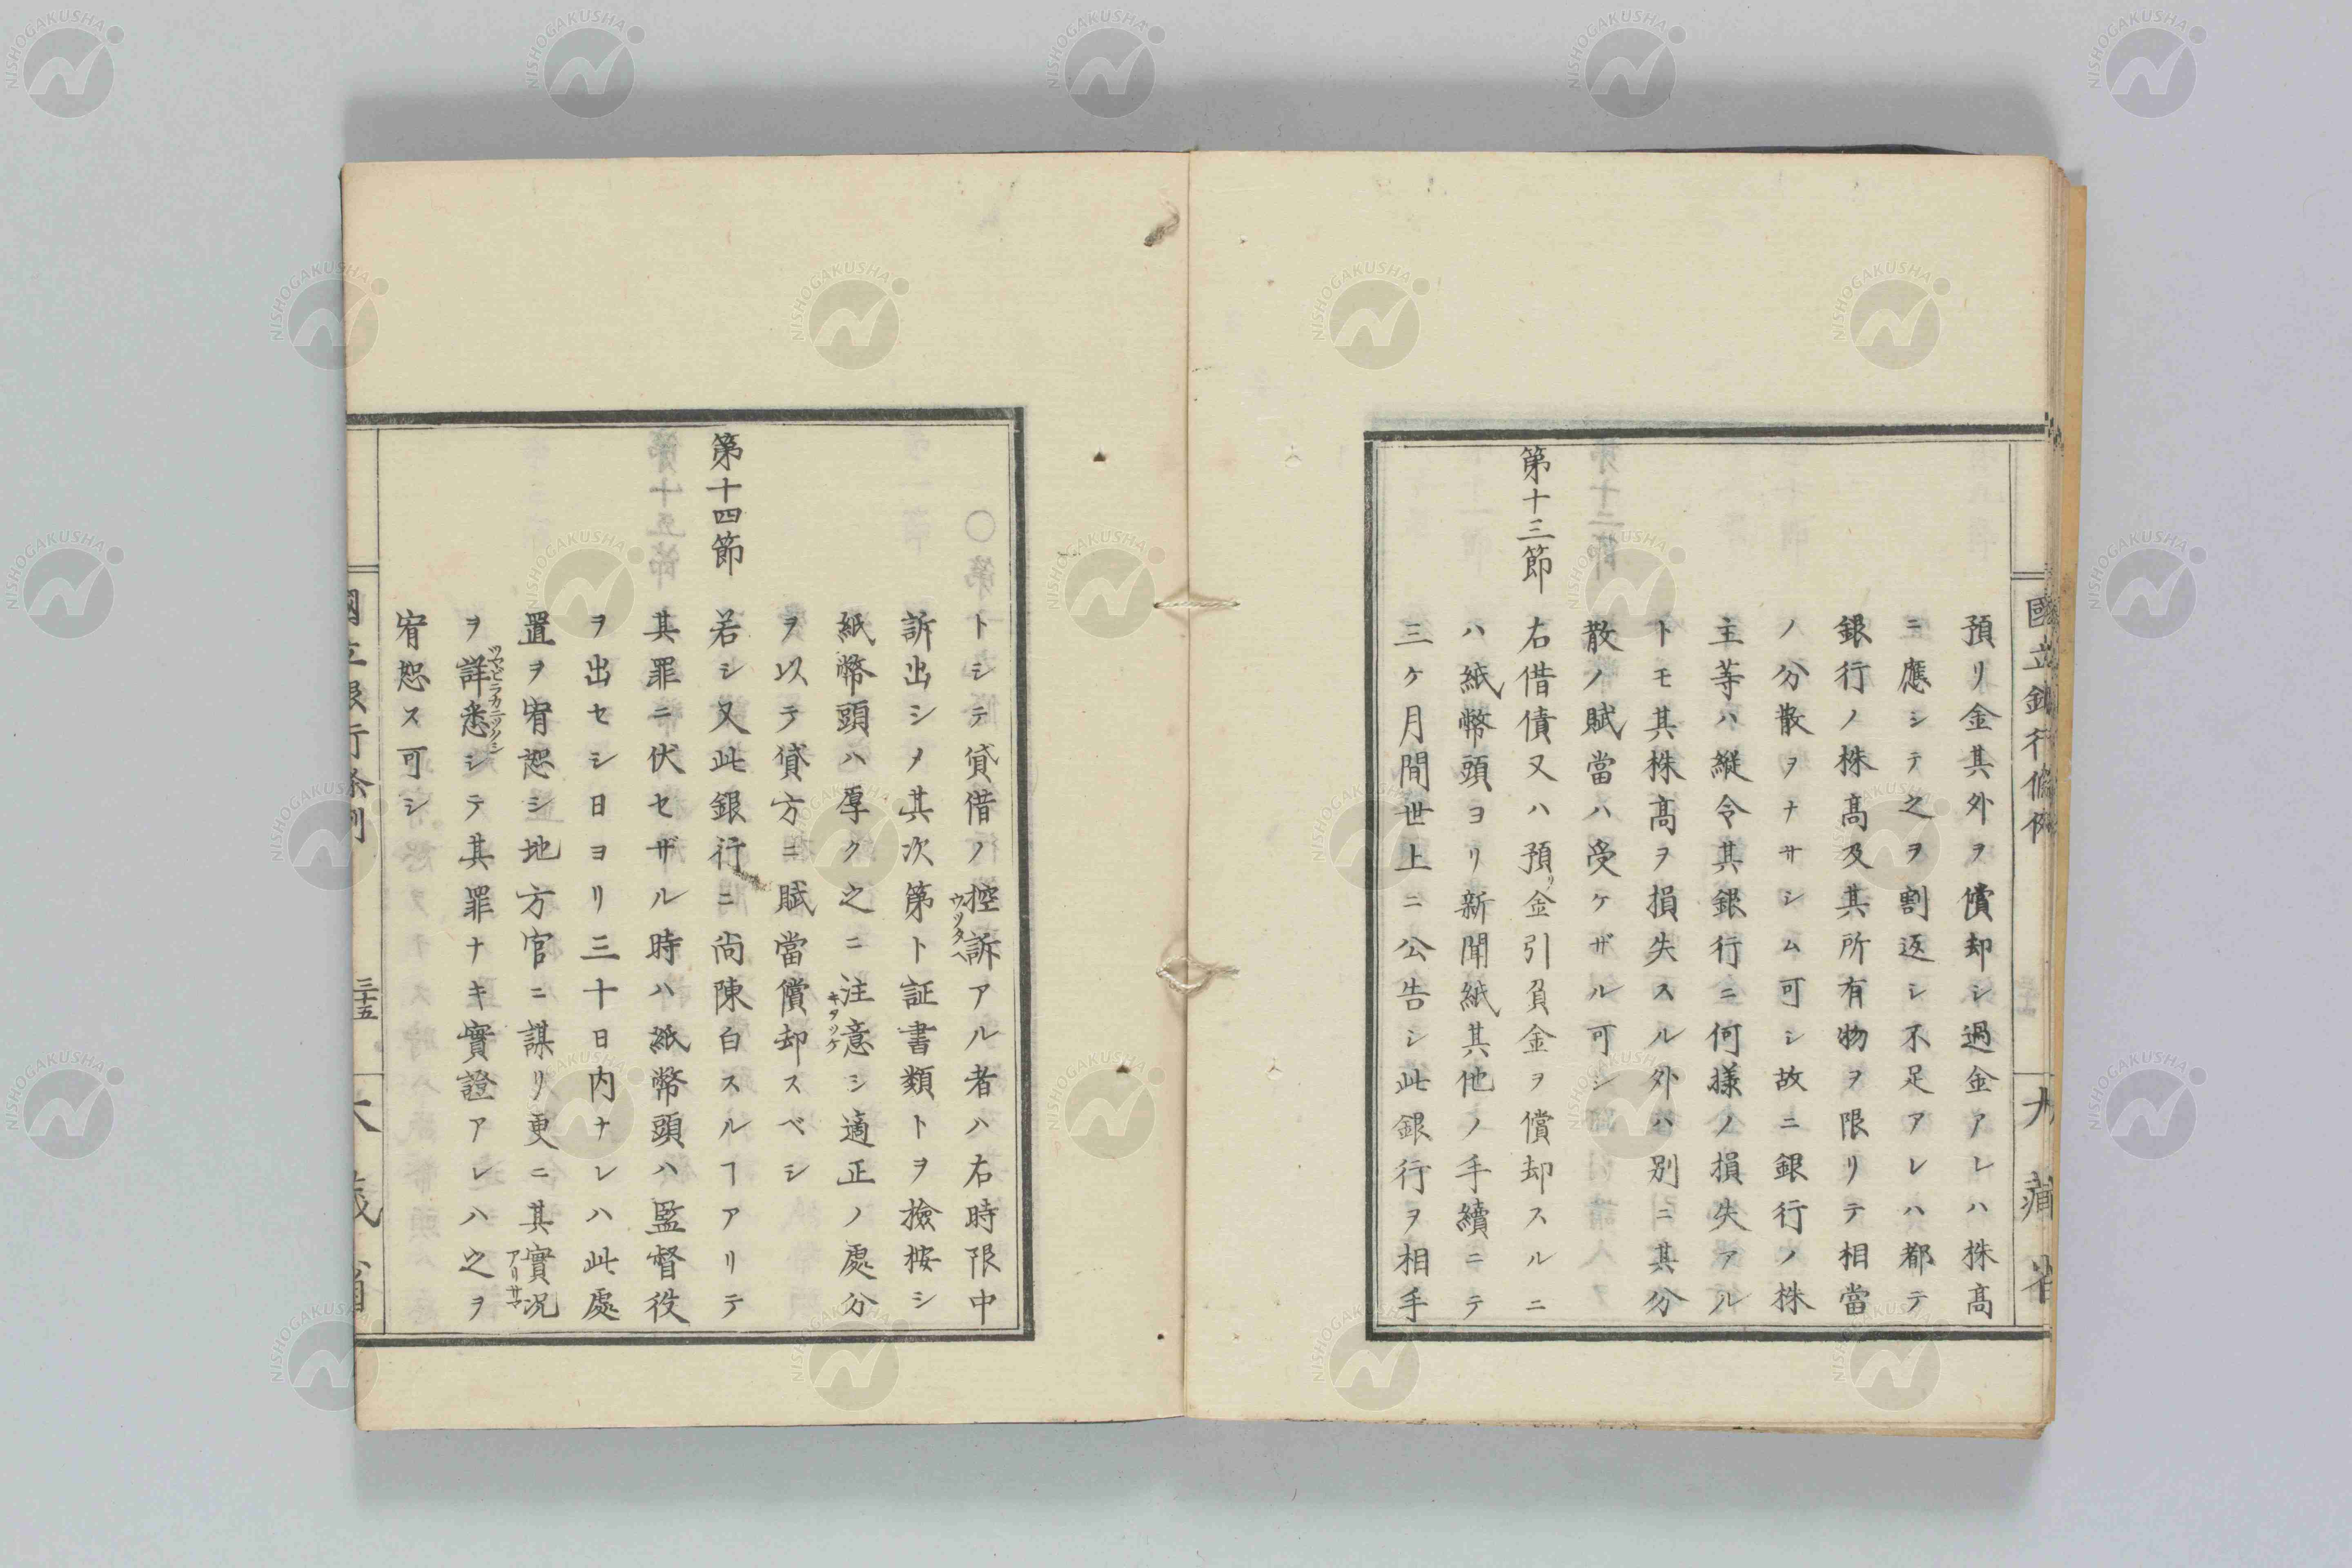 國立銀行條例
大藏省
預リ金其外ヲ償却シ過金アレハ株髙
ニ應シテ之ヲ割返シ不足アレハ都テ
銀行ノ株髙及其所有物ヲ限リテ相當
ノ分散ヲナサシム可シ故ニ銀行ノ株
主等ハ縦令其銀行ニ何様ノ損失アル
トモ其株髙ヲ損失スル外ハ別ニ其分
散ノ賦當ハ受ケザル可シ
第十三節
右借債又ハ預リ金引負金ヲ償却スルニ
ハ紙幣頭ヨリ新聞紙其他ノ手續ニテ
三ケ月間世上ニ公告シ此銀行ヲ相手
トシテ貸借ノ控訴アル者ハ右時限中
ウツタヘ
訴出シメ其次第ト証書類トヲ撿按シ
紙幣頭ハ厚ク之ニ注意シ適正ノ處分
キヲツケ
ヲ以テ貸方ニ賦當償却スベシ
第十四節
若シ又此銀行ニ尚陳白スルヿアリテ
其罪ニ伏セザル時ハ紙幣頭ハ監督役
ヲ出セシ日ヨリ三十日内ナレハ此處
置ヲ宥恕シ地方官ニ謀リ更ニ其實況
アリサマ
ヲ詳悉シテ其罪ナキ實證アレハ之ヲ
ツマビラカニツクシ
宥恕ス可シ
國立銀行條例
三十五
大藏省
NISHOGAKUSHA